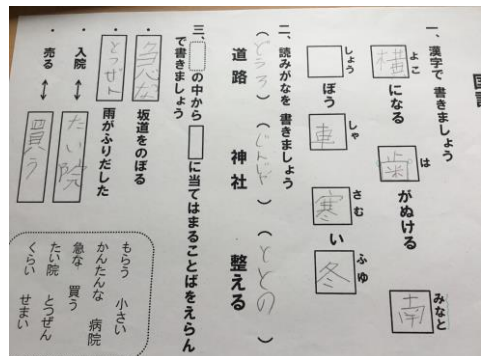 一、漢字で 書きましょう
よこ は みなと
横になる 歯がぬける 南
しょう しゃ さむ ふゆ
ぼう車 寒い冬
二、読みがなを 書きましょう
(どうろ)(じんじゃ)(ととの)
道路 神社 整える
三、の中から に当てはまることばをえらん
で書きましょう
・急な 坂道をのぼる
・とつぜん 雨がふりだした
・入院 ↔ たい院
・売る ↔ 買う
もらう 小さい
かんたんな 病院
急な 買う
たい院 とつぜん
くらい せまい